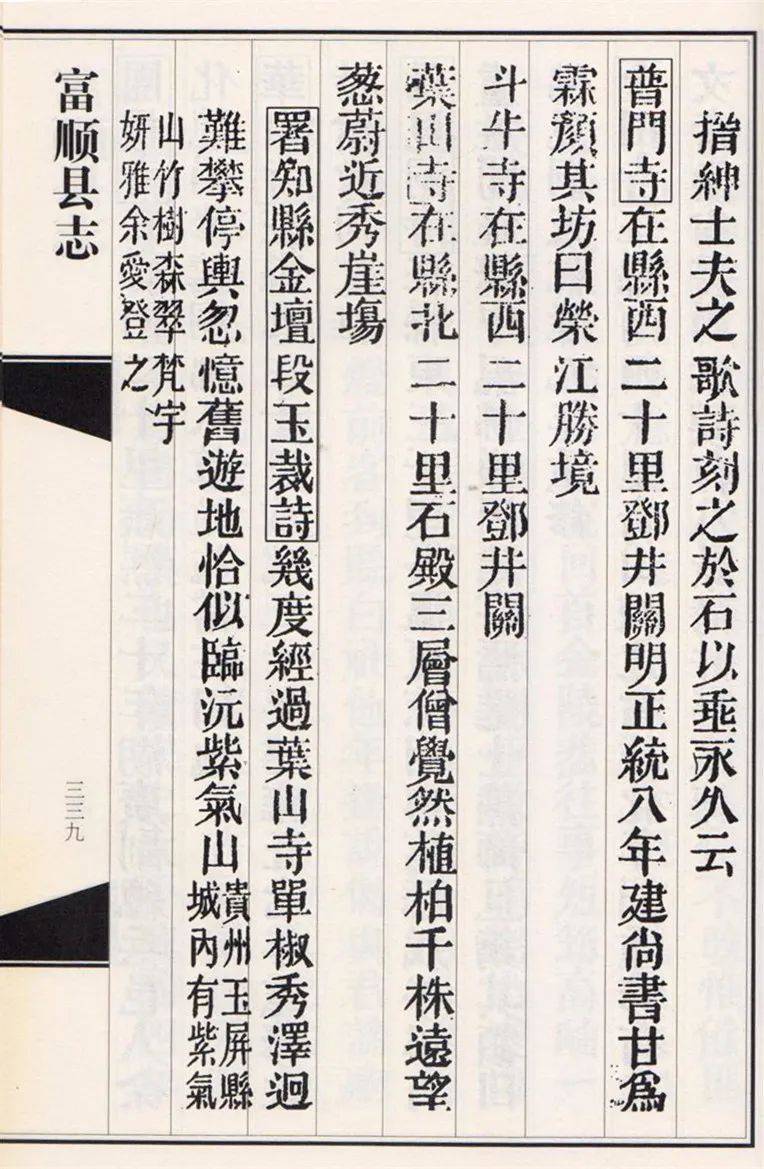 搢紳士夫之歌詩刻之於石以垂永久云
普門寺在縣西二十里鄧井關明正統八年建尙書甘爲
霖顏其坊曰榮江勝境
斗牛寺在縣西二十里鄧井關
葉山寺在縣北二十里石殿三層僧覺然植柏千株遠望
葱蔚近秀崖塲
署知縣金壇段玉裁詩幾度經過葉山寺單椒秀澤迥
難攀停輿忽憶舊遊地恰似臨沅紫氣山貴州玉屏縣城內有紫氣
山竹樹森翠梵宇
妍雅余愛登之
富顺县志
三三九